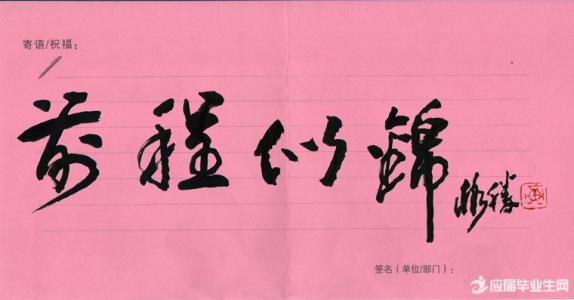 寄语/祝福：
前程似錦
彬
签名（单位/部门）：
应届毕业生网